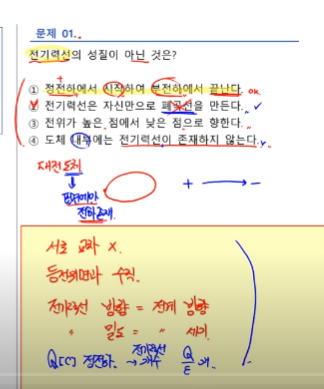 문제 01.
전기력선의 성질이 아닌 것은?
+
① 정전하에서 시작하여 부전하에서 끝난다. OK
② 전기력선은 자신만으로 폐곡선을 만든다.
③ 전위가 높은 점에서 낮은 점으로 향한다.
④ 도체 내부에는 전기력선이 존재하지 않는다.
대전 도체
+ → −
표면에만
전하 존재.
서로 교차 X.
등전위면과 수직.
전기력선 방향 = 전계 방향
〃 밀도 = 〃 세기.
Q[C] 정전하. → 전기력선 개수 Q/ε 개.